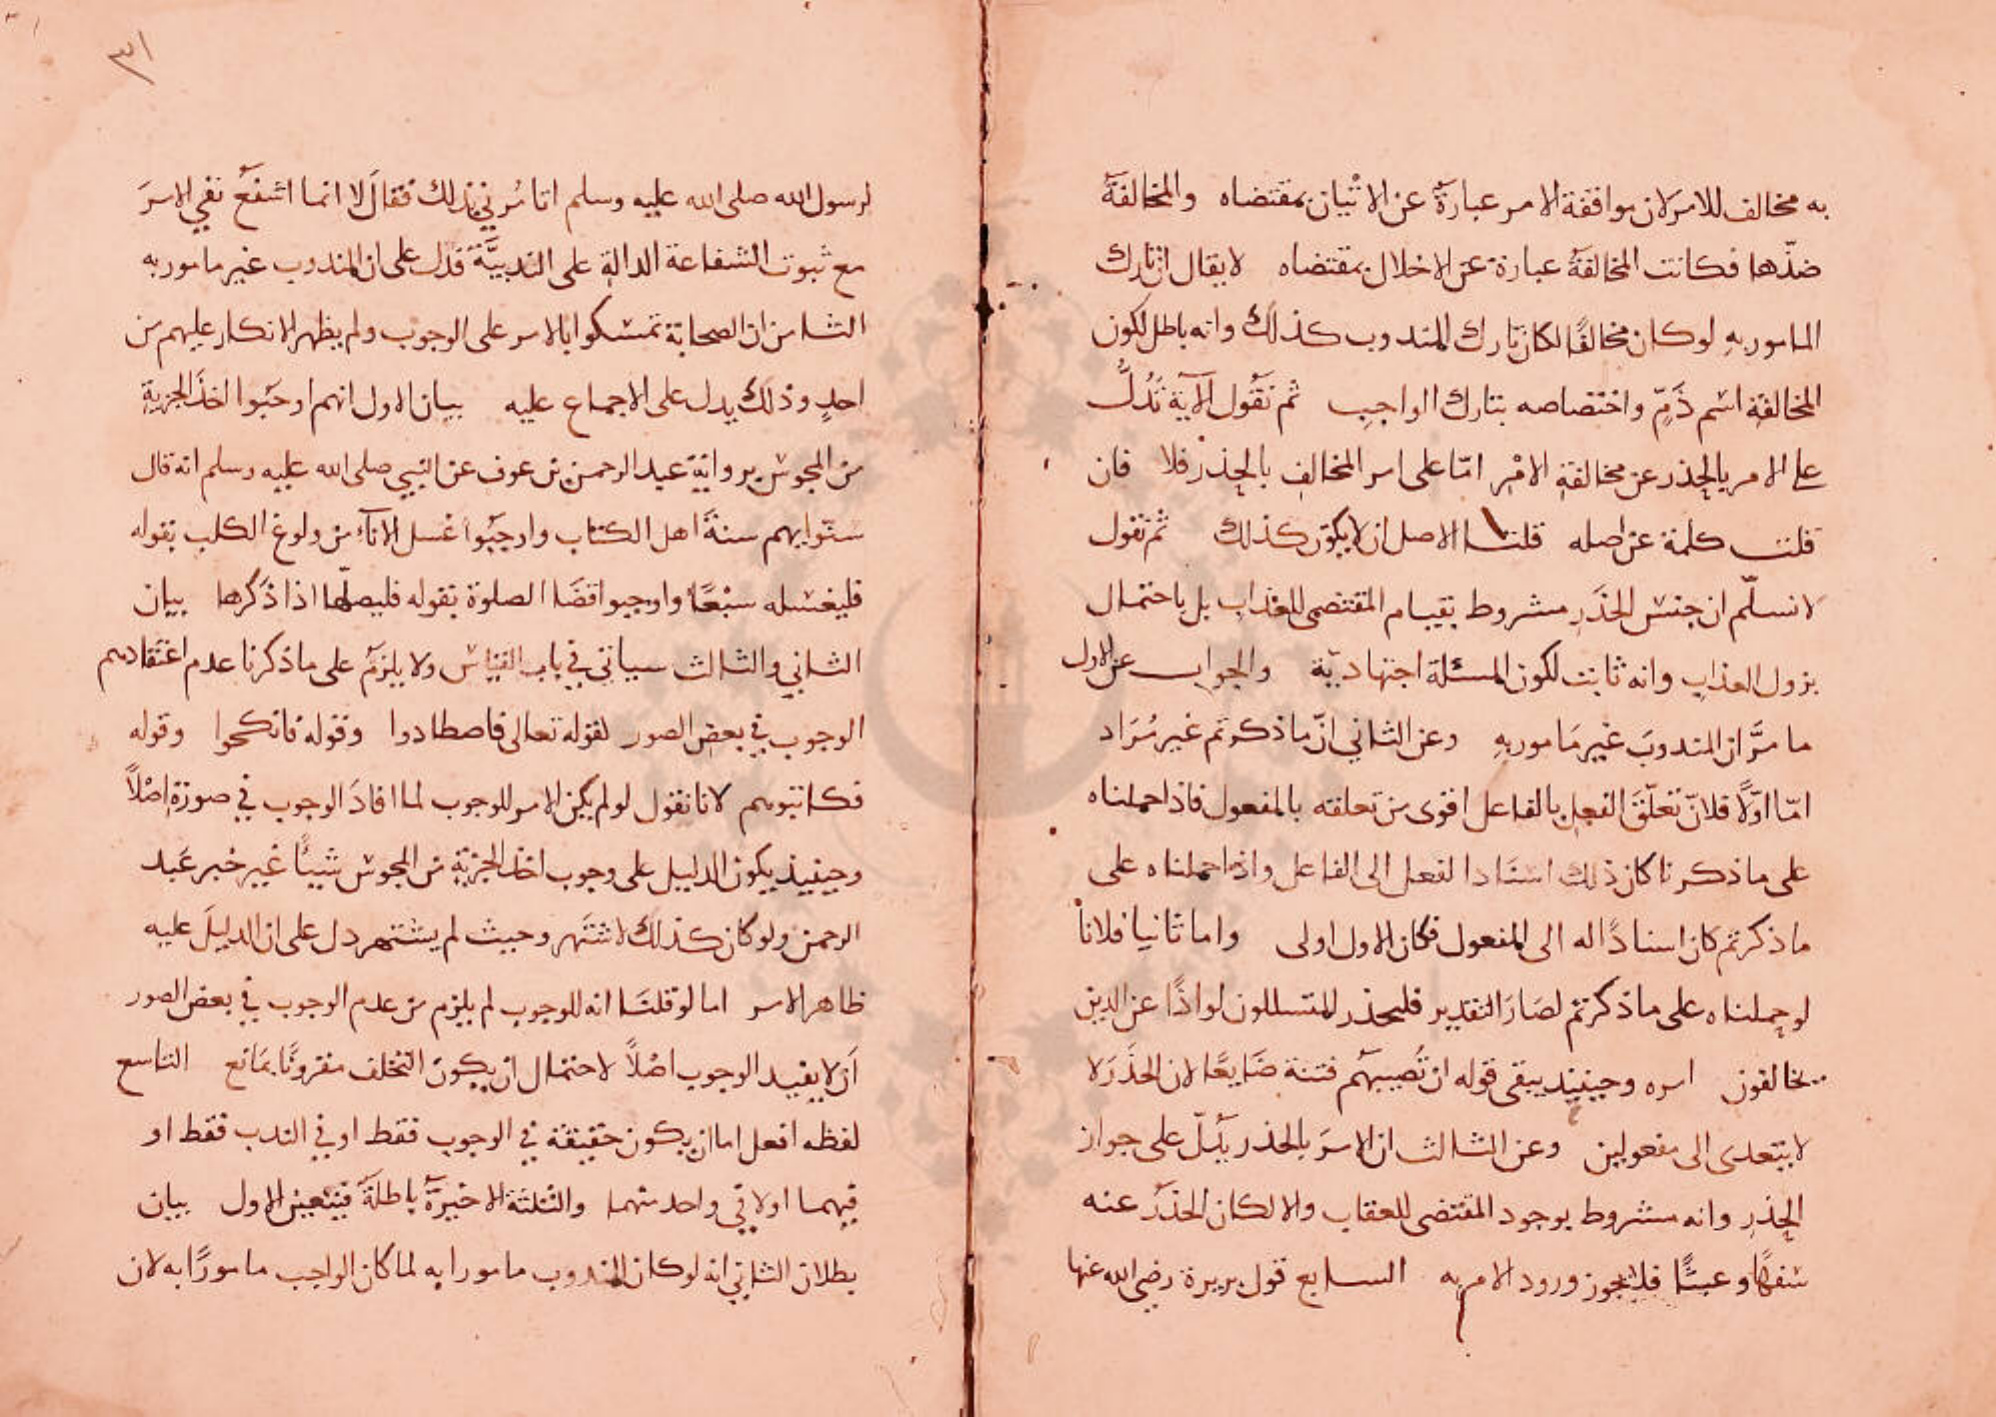 به مخالف للامر لان موافقة الامر عبارة عن الاتيان بمقتضاه والمخالفة
ضدها فكانت المخالفة عبارة عن الاخلال بمقتضاه لا يقال ان تارك
المامور به لو كان مخالفا لكان تارك المندوب كذلك وانه باطل لكون
المخالفة اسم ذم واختصاصه بتارك الواجب ثم نقول الآية تدل
على الامر بالحذر عن مخالفة الامر اما على امر المخالف بالحذر فلا فان
قلت كلمة عن اصله قلنا الاصل ان لا يكون كذلك ثم نقول
لا نسلم ان جنس الحذر مشروط بقيام المقتضى للعذاب بل باحتمال
بزول العذاب وانه ثابت لكون المسئلة اجتهادية والجواب عن الاول
ما مر ان المندوب غير مامور به وعن الثاني ان ما ذكرتم غير مراد
اما اولا فلان تعلق الفعل بالفاعل اقوى من تعلقه بالمفعول فاذا حملناه
على ما ذكرنا كان ذلك اسنادا لفعل الى الفاعل واذا حملناه على
ما ذكرتم كان اسنادا له الى المفعول فكان الاول اولى واما ثانيا فلانا
لو حملناه على ما ذكرتم لصار التقدير فليحذر المتسللون لواذا عن الدين
يخالفون امره وحينيذ يبقى قوله ان تصيبهم فتنة ضايعا لان الحذر لا
لا يتعدى الى مفعولين وعن الثالث ان الامر بالحذر يدل على جواز
الحذر وانه مشروط بوجود المقتضى للعقاب والا لكان الحذر عنه
سفها وعبثا فلا يجوز ورود الامر به السابع قول بريرة رضي الله عنها
٣١
لرسول الله صلى الله عليه وسلم اتامرني بذلك فقال لا انما اشفع نفي الامر
مع ثبوت الشفاعة الدالة على الندبية فدل على ان المندوب غير مامور به
الثامن ان الصحابة تمسكوا بالامر على الوجوب ولم يظهر الانكار عليهم من
احد وذلك يدل على الاجماع عليه بيان الاول انهم اوجبوا اخذ الجزية
من المجوس برواية عبد الرحمن بن عوف عن النبي صلى الله عليه وسلم انه قال
سنوا بهم سنة اهل الكتاب واوجبوا غسل الاناء من ولوغ الكلب بقوله
فليغسله سبعا واوجبوا قضا الصلوة بقوله فليصلها اذا ذكرها بيان
الثاني والثالث سياتي في باب القياس ولا يلزم على ما ذكرنا عدم اعتقادهم
الوجوب في بعض الصور لقوله تعالى فاصطادوا وقوله فانكحوا وقوله
فكاتبوهم لانا نقول لو لم يكن الامر للوجوب لما افاد الوجوب في صورة اصلا
وحينيذ يكون الدليل على وجوب اخذ الجزية من المجوس شييا غير خبر عبد
الرحمن ولو كان كذلك لاشتهر وحيث لم يشتهر دل على ان الدليل عليه
ظاهر الامر اما لو قلنا انه للوجوب لم يلزم من عدم الوجوب في بعض الصور
ان لا يفيد الوجوب اصلا لاحتمال ان يكون التخلف مقرونا بمانع التاسع
لفظه افعل اما ان يكون حقيقة في الوجوب فقط او في الندب فقط او
فيهما او لا في واحد منهما والثلثة الاخيرة باطلة فيتعين الاول بيان
بطلان الثاني انه لو كان المندوب مامورا به لما كان الواجب مامورا به لان